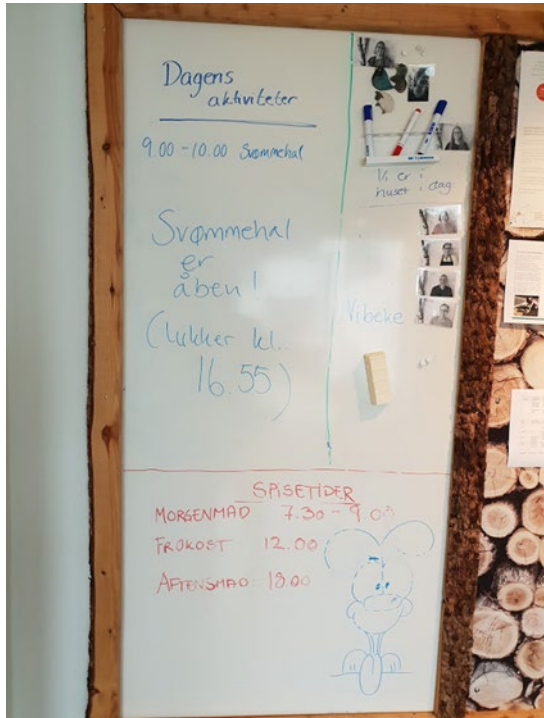 Dagens
aktiviteter
9.00 - 10.00 Svømmehal
Svømmehal
er
åben!
(lukker kl.
16.55)
Vi er i
huset i dag
Vibeke
SPISETIDER
MORGENMAD 7.30 - 9.00
FROKOST 12.00
AFTENSMAD 18.00